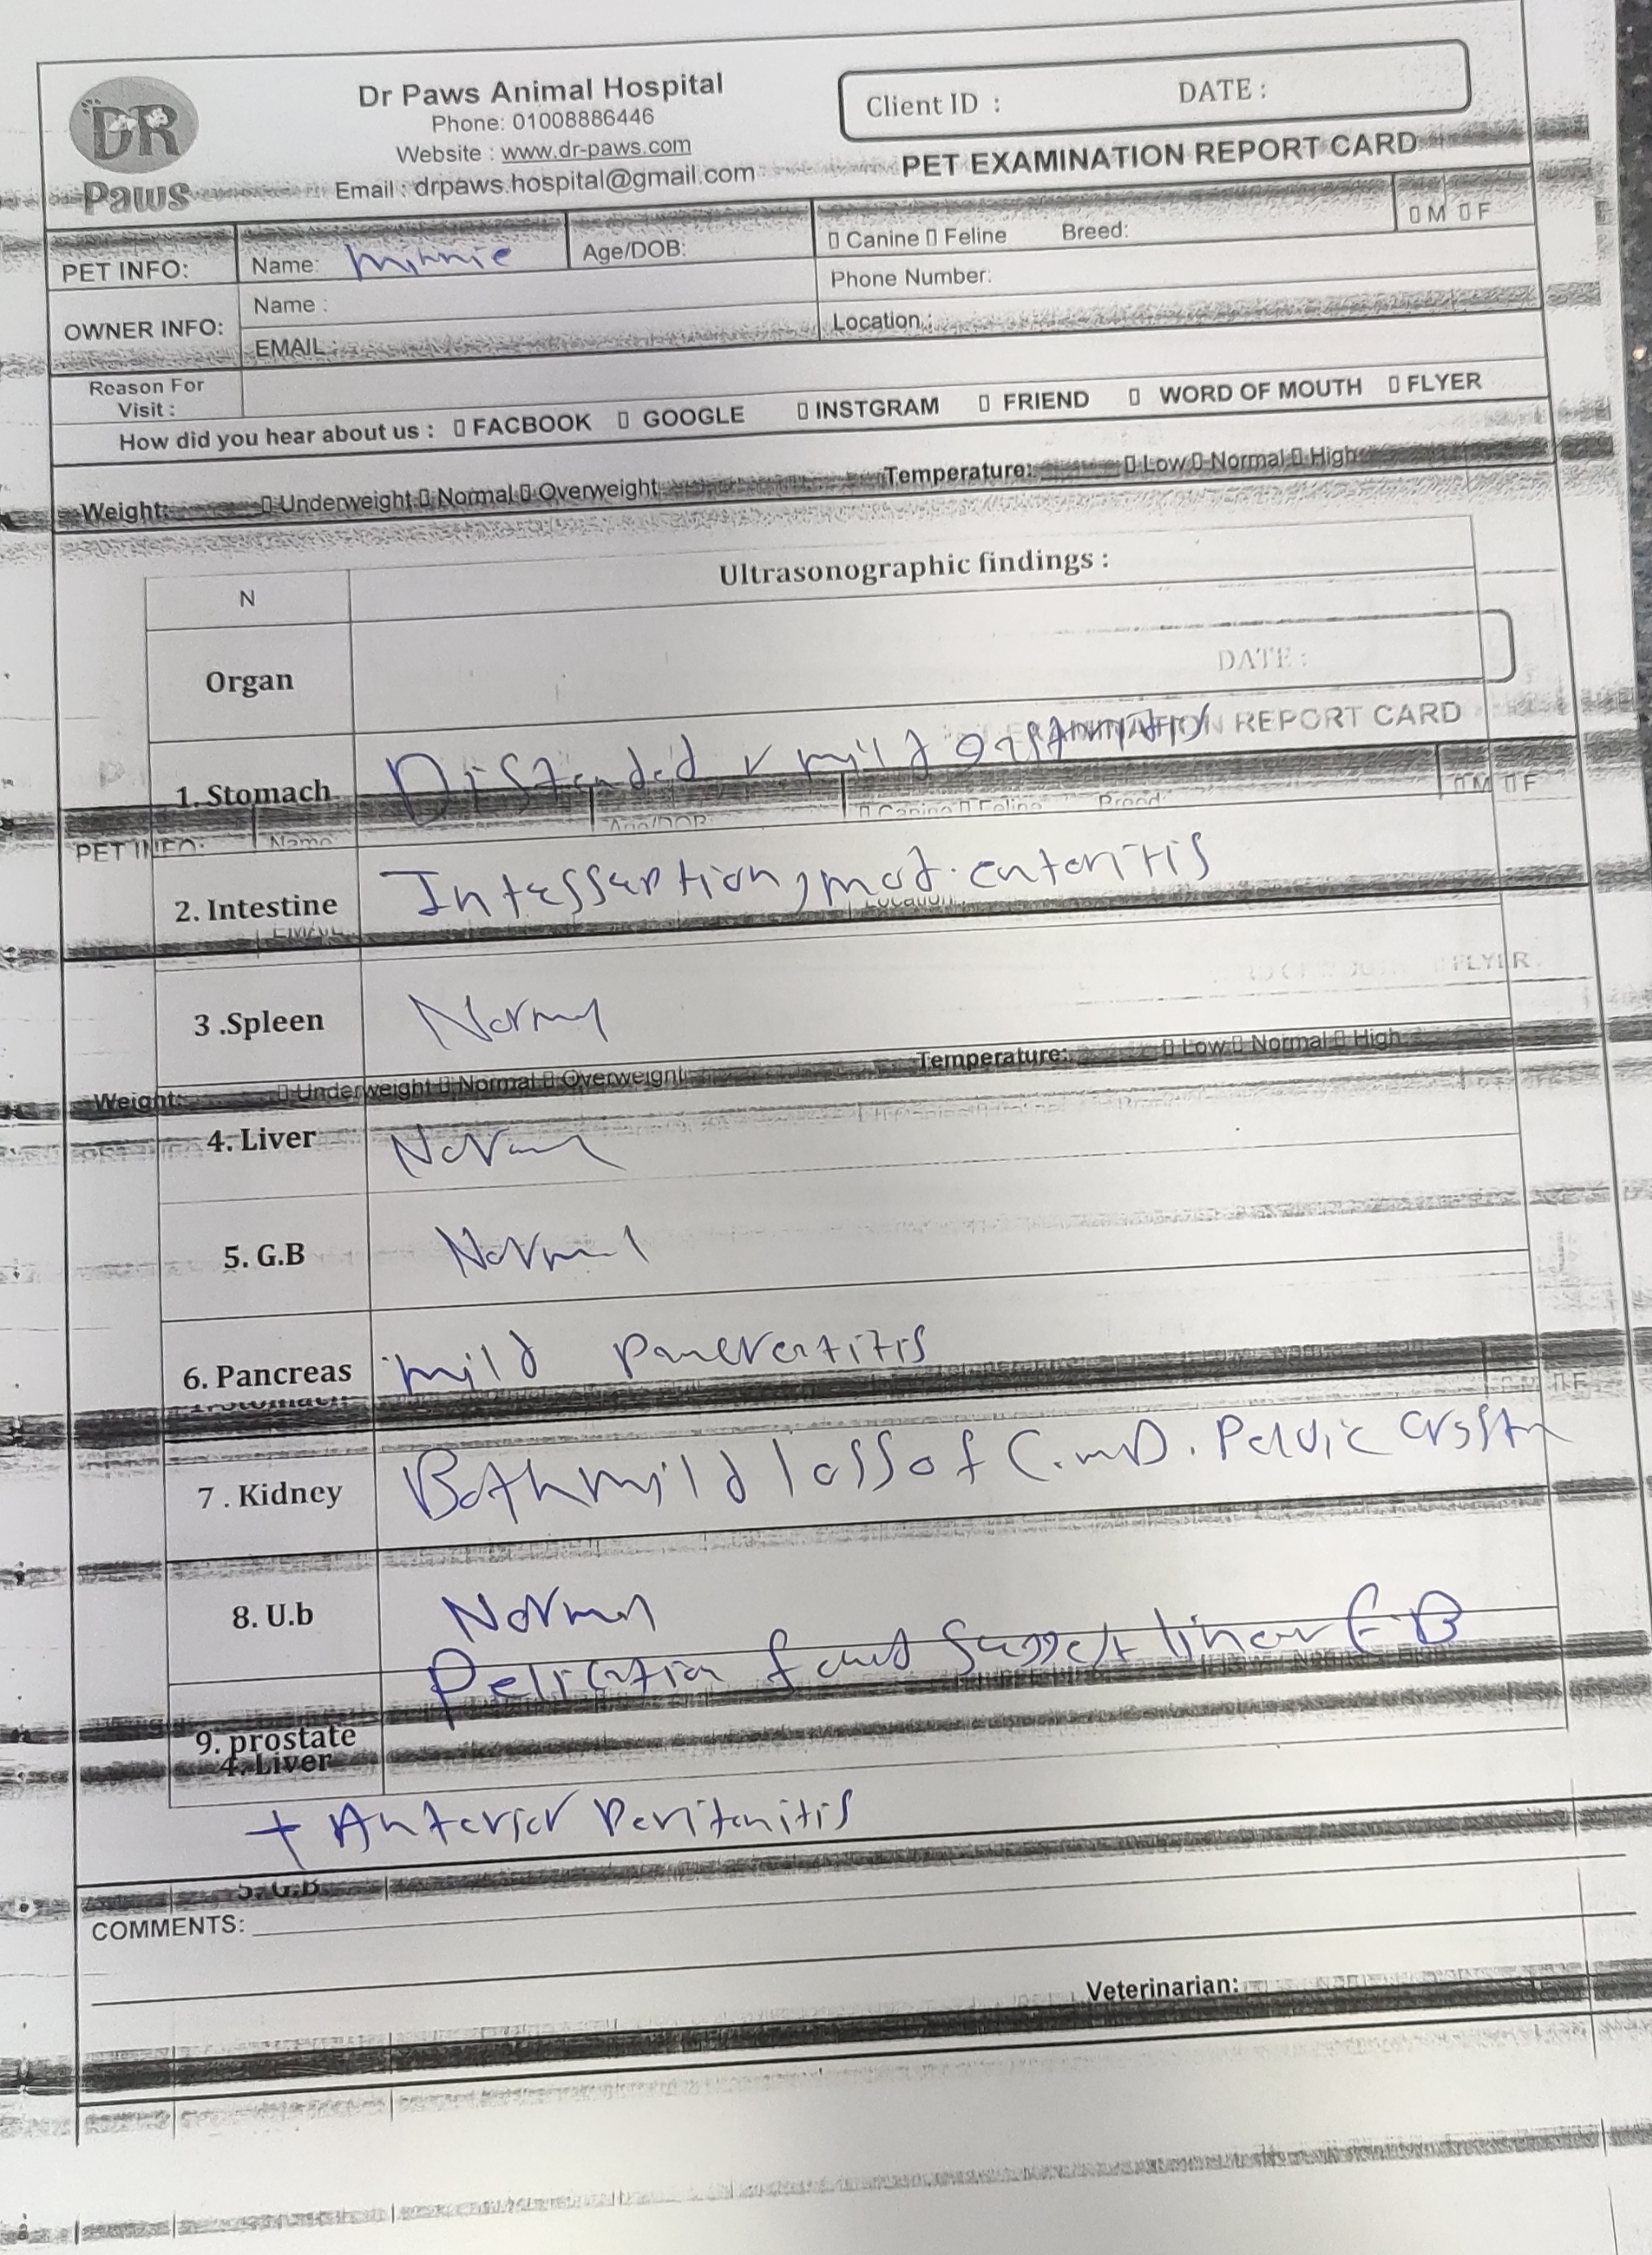 DR
Paws
Dr Paws Animal Hospital
Phone: 01008886446
Website : www.dr-paws.com
Email : drpaws.hospital@gmail.com
Client ID : DATE :
PET EXAMINATION REPORT CARD
PET INFO: Name: Minnie Age/DOB: Canine Feline Breed: M F
OWNER INFO: Name : Phone Number:
EMAIL : Location :
Reason For
Visit :
How did you hear about us : FACBOOK GOOGLE INSTGRAM FRIEND WORD OF MOUTH FLYER
Weight: Underweight Normal Overweight Temperature: Low Normal High
N Ultrasonographic findings :
Organ
DATE :
REPORT CARD
1. Stomach Distended mild
M F
PET INFO: Name
2. Intestine Intessseption, mod. enteritis
FLYER
3 .Spleen Normal
Weight: Underweight Normal Overweight Temperature: Low Normal High
4. Liver Normal
5. G.B Normal
6. Pancreas mild
7 . Kidney Both mild loss of C.mD. Pelvic
8. U.b Normal
suggest linear F.B
9. prostate
4. Liver
+ Anterior Peritonitis
5. G.B
COMMENTS:
Veterinarian: